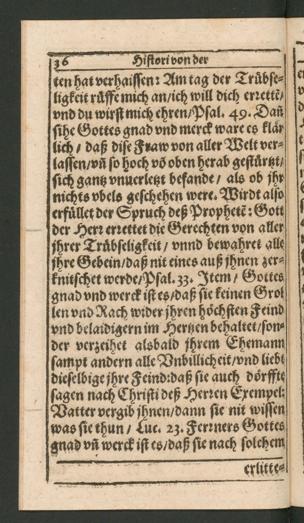 36 Histori von der
ten hat verhaissen: Am tag der Trübse-
ligkeit rüffe mich an/ich will dich erzettē/
vnd du wirst mich ehren/Psal. 49. Dañ
sihe Gottes gnad vnd merck ware es klär
lich / daß dise Fraw von aller Welt ver-
lassen/vñ so hoch vō oben herab gestürtzt/
sich gantz vnuerletzt befande / als ob jhr
nichts vbels geschehen were. Wirdt also
erfüllet der Spruch deß Prophetē: Gott
der Herr errettet die Gerechten von aller
jhrer Trübseligkeit / vnnd bewahret alle
jhre Gebein/daß nit eines auß jhnen zer-
knitschet werde/Psal. 33. Item / Gottes
gnad vnd werck ist es/daß sie keinen Grol
len vnd Rach wider jhren höchsten Feind
vnd belaidigern im Hertzen behaltet/son-
der verzeihet alsbald jhrem Ehemann
sampt andern alle Vnbillicheit/vnd liebt
dieselbige jhre Feind:daß sie auch dörffte
sagen nach Christi deß Herren Exempel:
Vatter vergib jhnen/dann sie nit wissen
was sie thun / Luc. 23. Ferrners Gottes
gnad vñ werck ist es/daß sie nach solchem
erlitte=